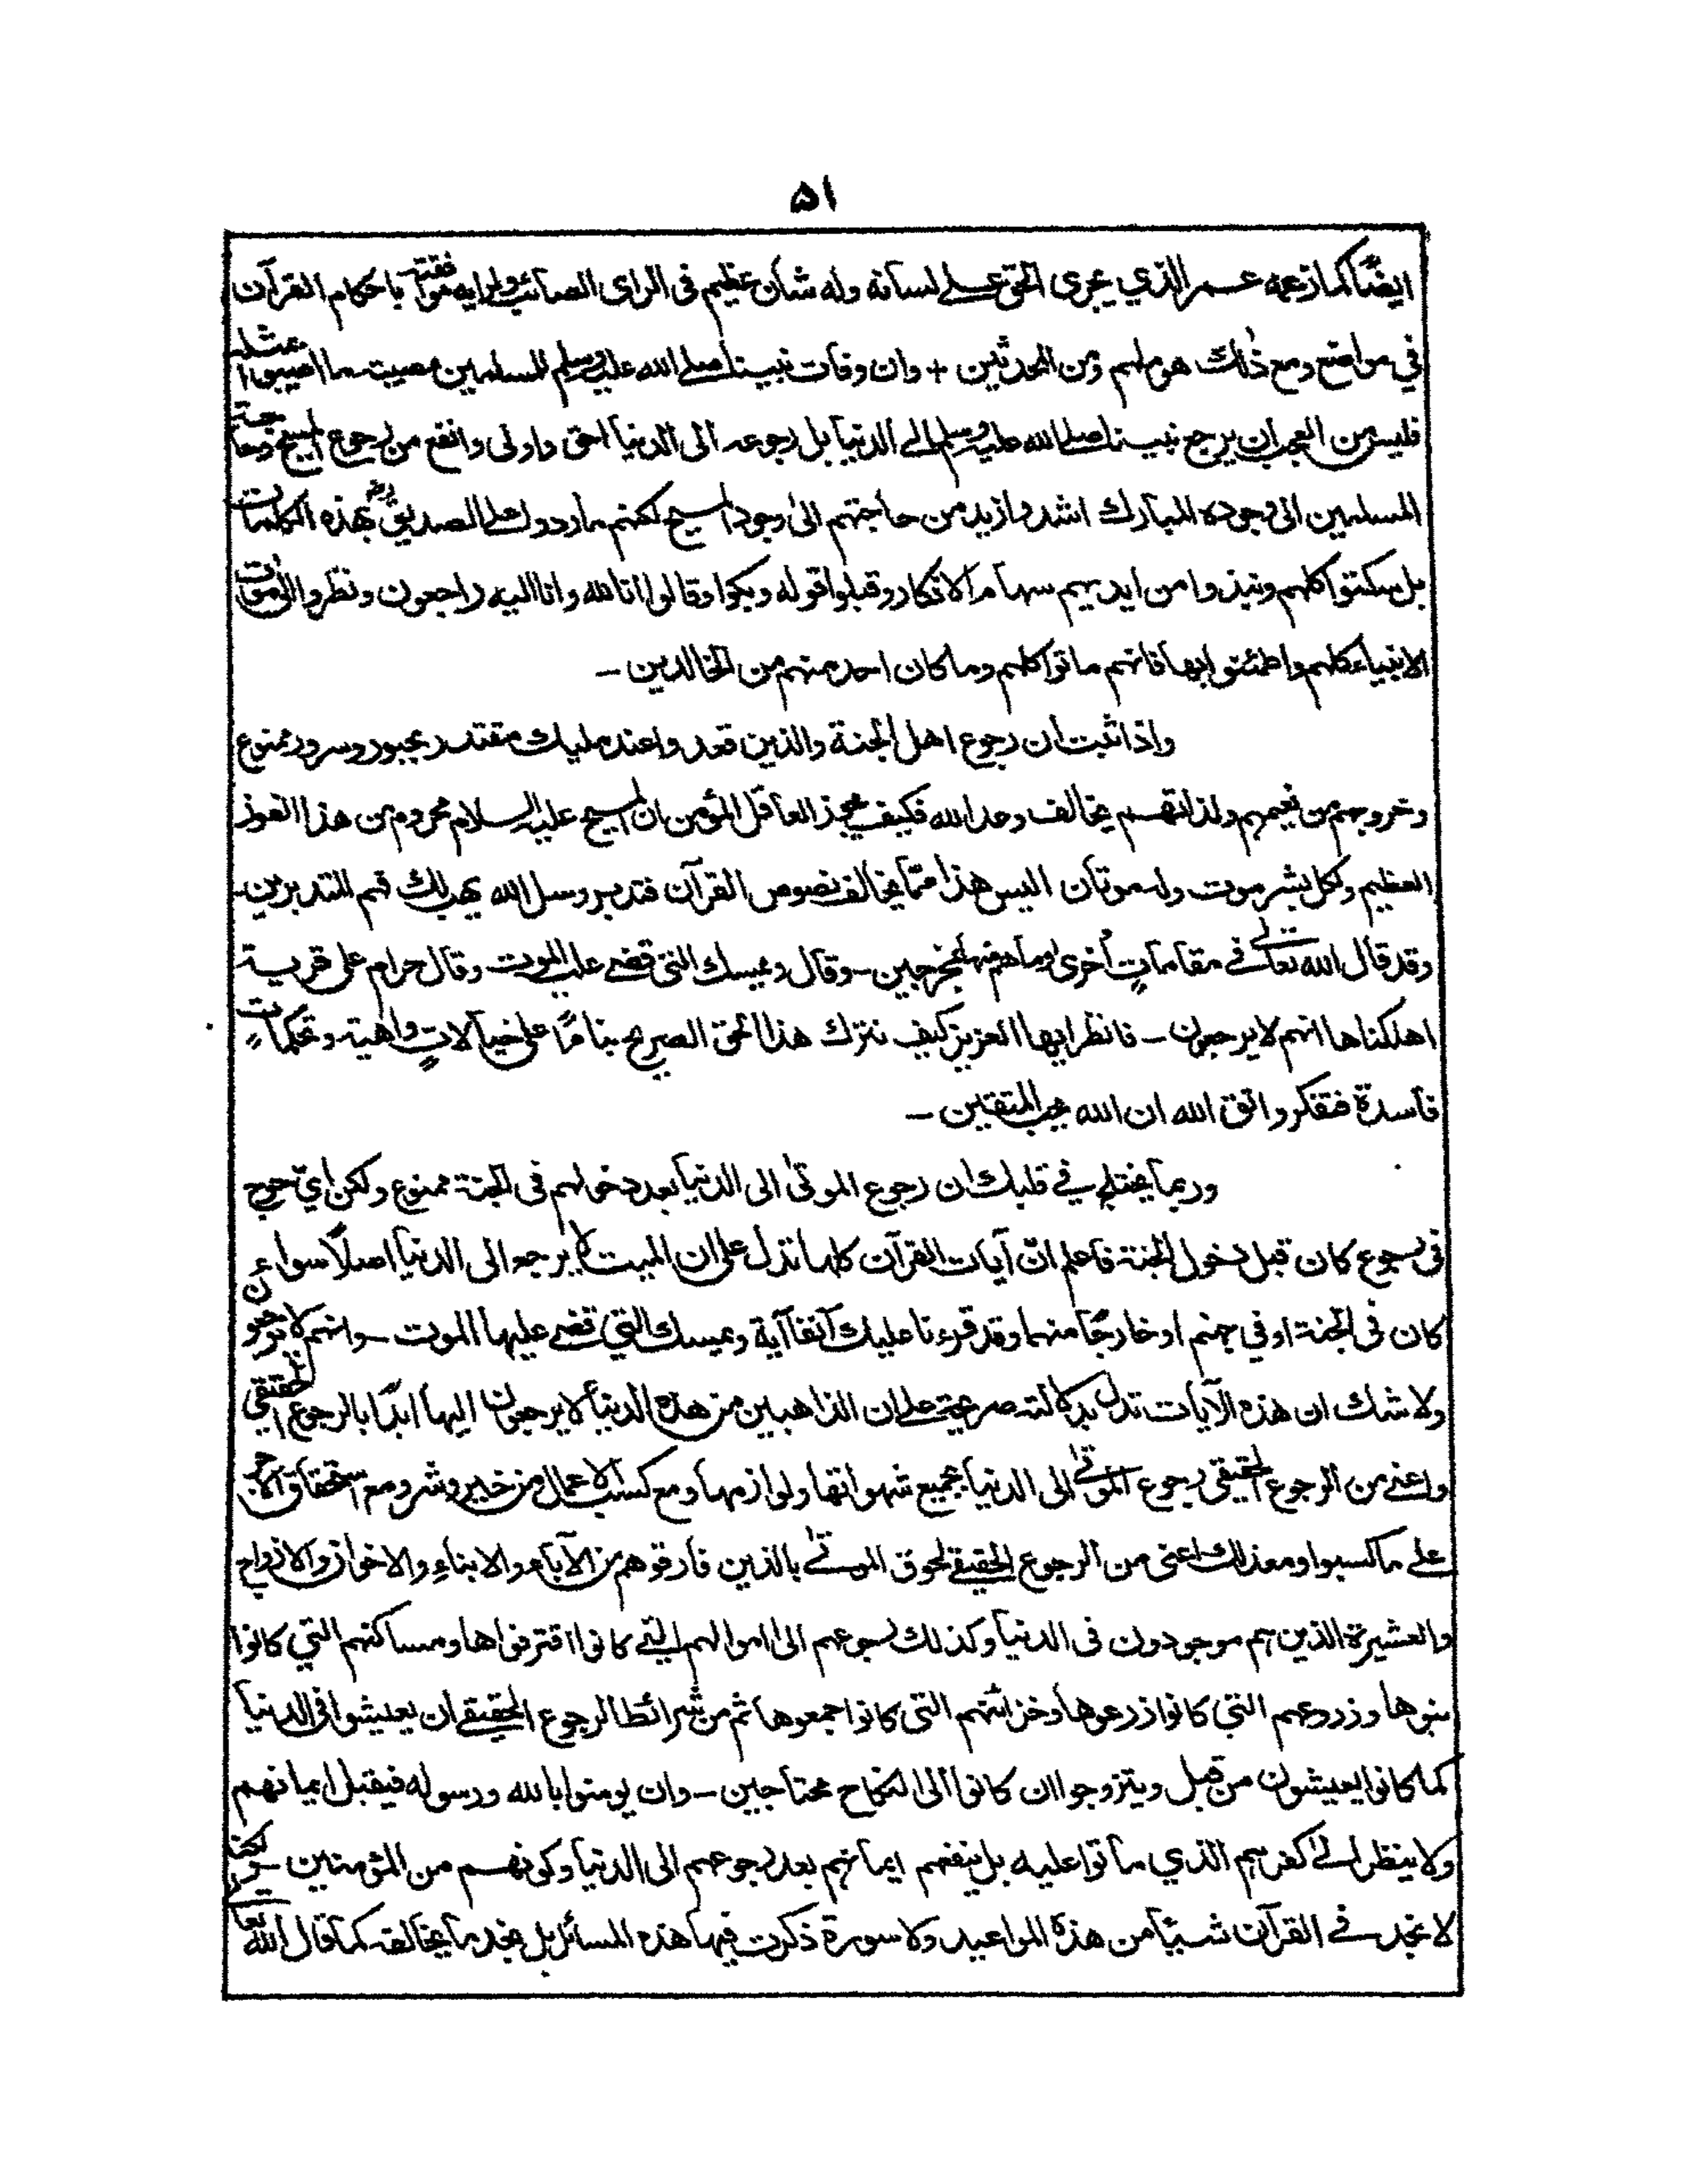 ٥١
ايضًا كما زعمه عمر الذي يجرى الحق على لسانه وله شان عظيم فى الراى الصائب ولرايه موافقة باحكام القرآن
في مواضع ومع ذلك هو ملهم ومن المحدثين + وان وفات نبينا صلے الله عليه وسلم للمسلمين مصيبت ما اصيبوا بمثله
فليس من العجب ان يرجع نبينا صلے الله عليه وسلم الے الدنيا بل رجوعه الى الدنيا احق واولى وانفع من رجوع المسيح وحاجة
المسلمين الى وجوده المبارك اشد وازيد من حاجتهم الىٰ وجود المسيح لكنهم ما ردوا على الصديقؓ بهذه الكلمات
بل سكتوا كلهم ونبذوا من ايديهم سهام الانكار وقبلوا قوله وبكوا وقالوا انا لله وانا اليه راجعون ونظروا الى موت
الانبياء كلهم واطمئنوا بها فانهم ماتوا كلهم وما كان احد منهم من الخالدين ـ
واذا ثبت ان رجوع اهل الجنة والذين قعدوا عند مليك مقتدر بحبور وسرور ممنوع
وخروجهم من نعيمهم ولذاتهم يخالف وعد الله فكيف يجوز العاقل المؤمن ان المسيح عليه السلام محروم من هذا الفوز
العظيم ولكل بشر موت وله موتان اليس هذا ممّا يخالف نصوص القرآن فتدبر وسل الله يهب لك فهم المتدبرين ـ
وقد قال الله تعالى فے مقاماتٍ أخرى وما هم منها بمخرجين ـ وقال ويمسك التى قضے عليها الموت وقال حرام على قرية
اهلكناها انهم لا يرجعون ـ فانظر ايها العزيز كيف نترك هذا الحق الصريح بناءً على خيالاتٍ واهية وتحكماتٍ
فاسدة فتفكر واتق الله ان الله يحب المتقين ـ
وربما يختلج في قلبك ان رجوع الموتىٰ الى الدنيا بعد دخولهم فى الجنة ممنوع ولكن ايّ حرج
فى رجوع كان قبل دخول الجنة فاعلم انّ آيات القرآن كلها تدل على ان الميت لا يرجع الى الدنيا اصلًا سواء
كان فى الجنة او في جهنم او خارجًا منهما وقد قرءنا عليك آنفا آية ويمسك التي قضے عليها الموت ـ وانهم لا يرجعون
ولا شك ان هذه الآيات تدل بدلالة صريحة على ان الذاهبين من هذه الدنيا لا يرجعون اليها ابدًا بالرجوع الحقيقي
واعنى من الرجوع الحقيقى رجوع الموتىٰ الى الدنيا بجميع شهواتها ولوازمها ومع كسب الاعمال من خير وشر ومع استحقاق الاجر
على ما كسبوا ومعذلك اعنى من الرجوع الحقيقے لحوق الموتىٰ بالذين فارقوهم من الآباء والابناءِ والاخوان والازواج
والعشيرة الذين هم موجودون فى الدنيا وكذلك رجوعهم الى اموالهم التى كانوا اقترفوها ومساكنهم التي كانوا
بنوها وزروعهم التي كانوا زرعوها وخزائنهم التى كانوا جمعوها ثم من شرائط الرجوع الحقيقے ان يعيشوا فى الدنيا
كما كانوا يعيشون من قبل ويتزوجوا ان كانوا الى النكاح محتاجين ـ وان يومنوا بالله ورسوله فيقبل ايمانهم
ولا ينظر الىٰ كفرهم الذي ماتوا عليه بل ينفعهم ايمانهم بعد رجوعهم الى الدنيا وكونهم من المؤمنين ـ ولكنّا
لا نجد فے القرآن شيئًا من هذه المواعيد ولا سورة ذكرت فيها هذه المسائل بل نجد ما يخالفه كما قال الله تعالى